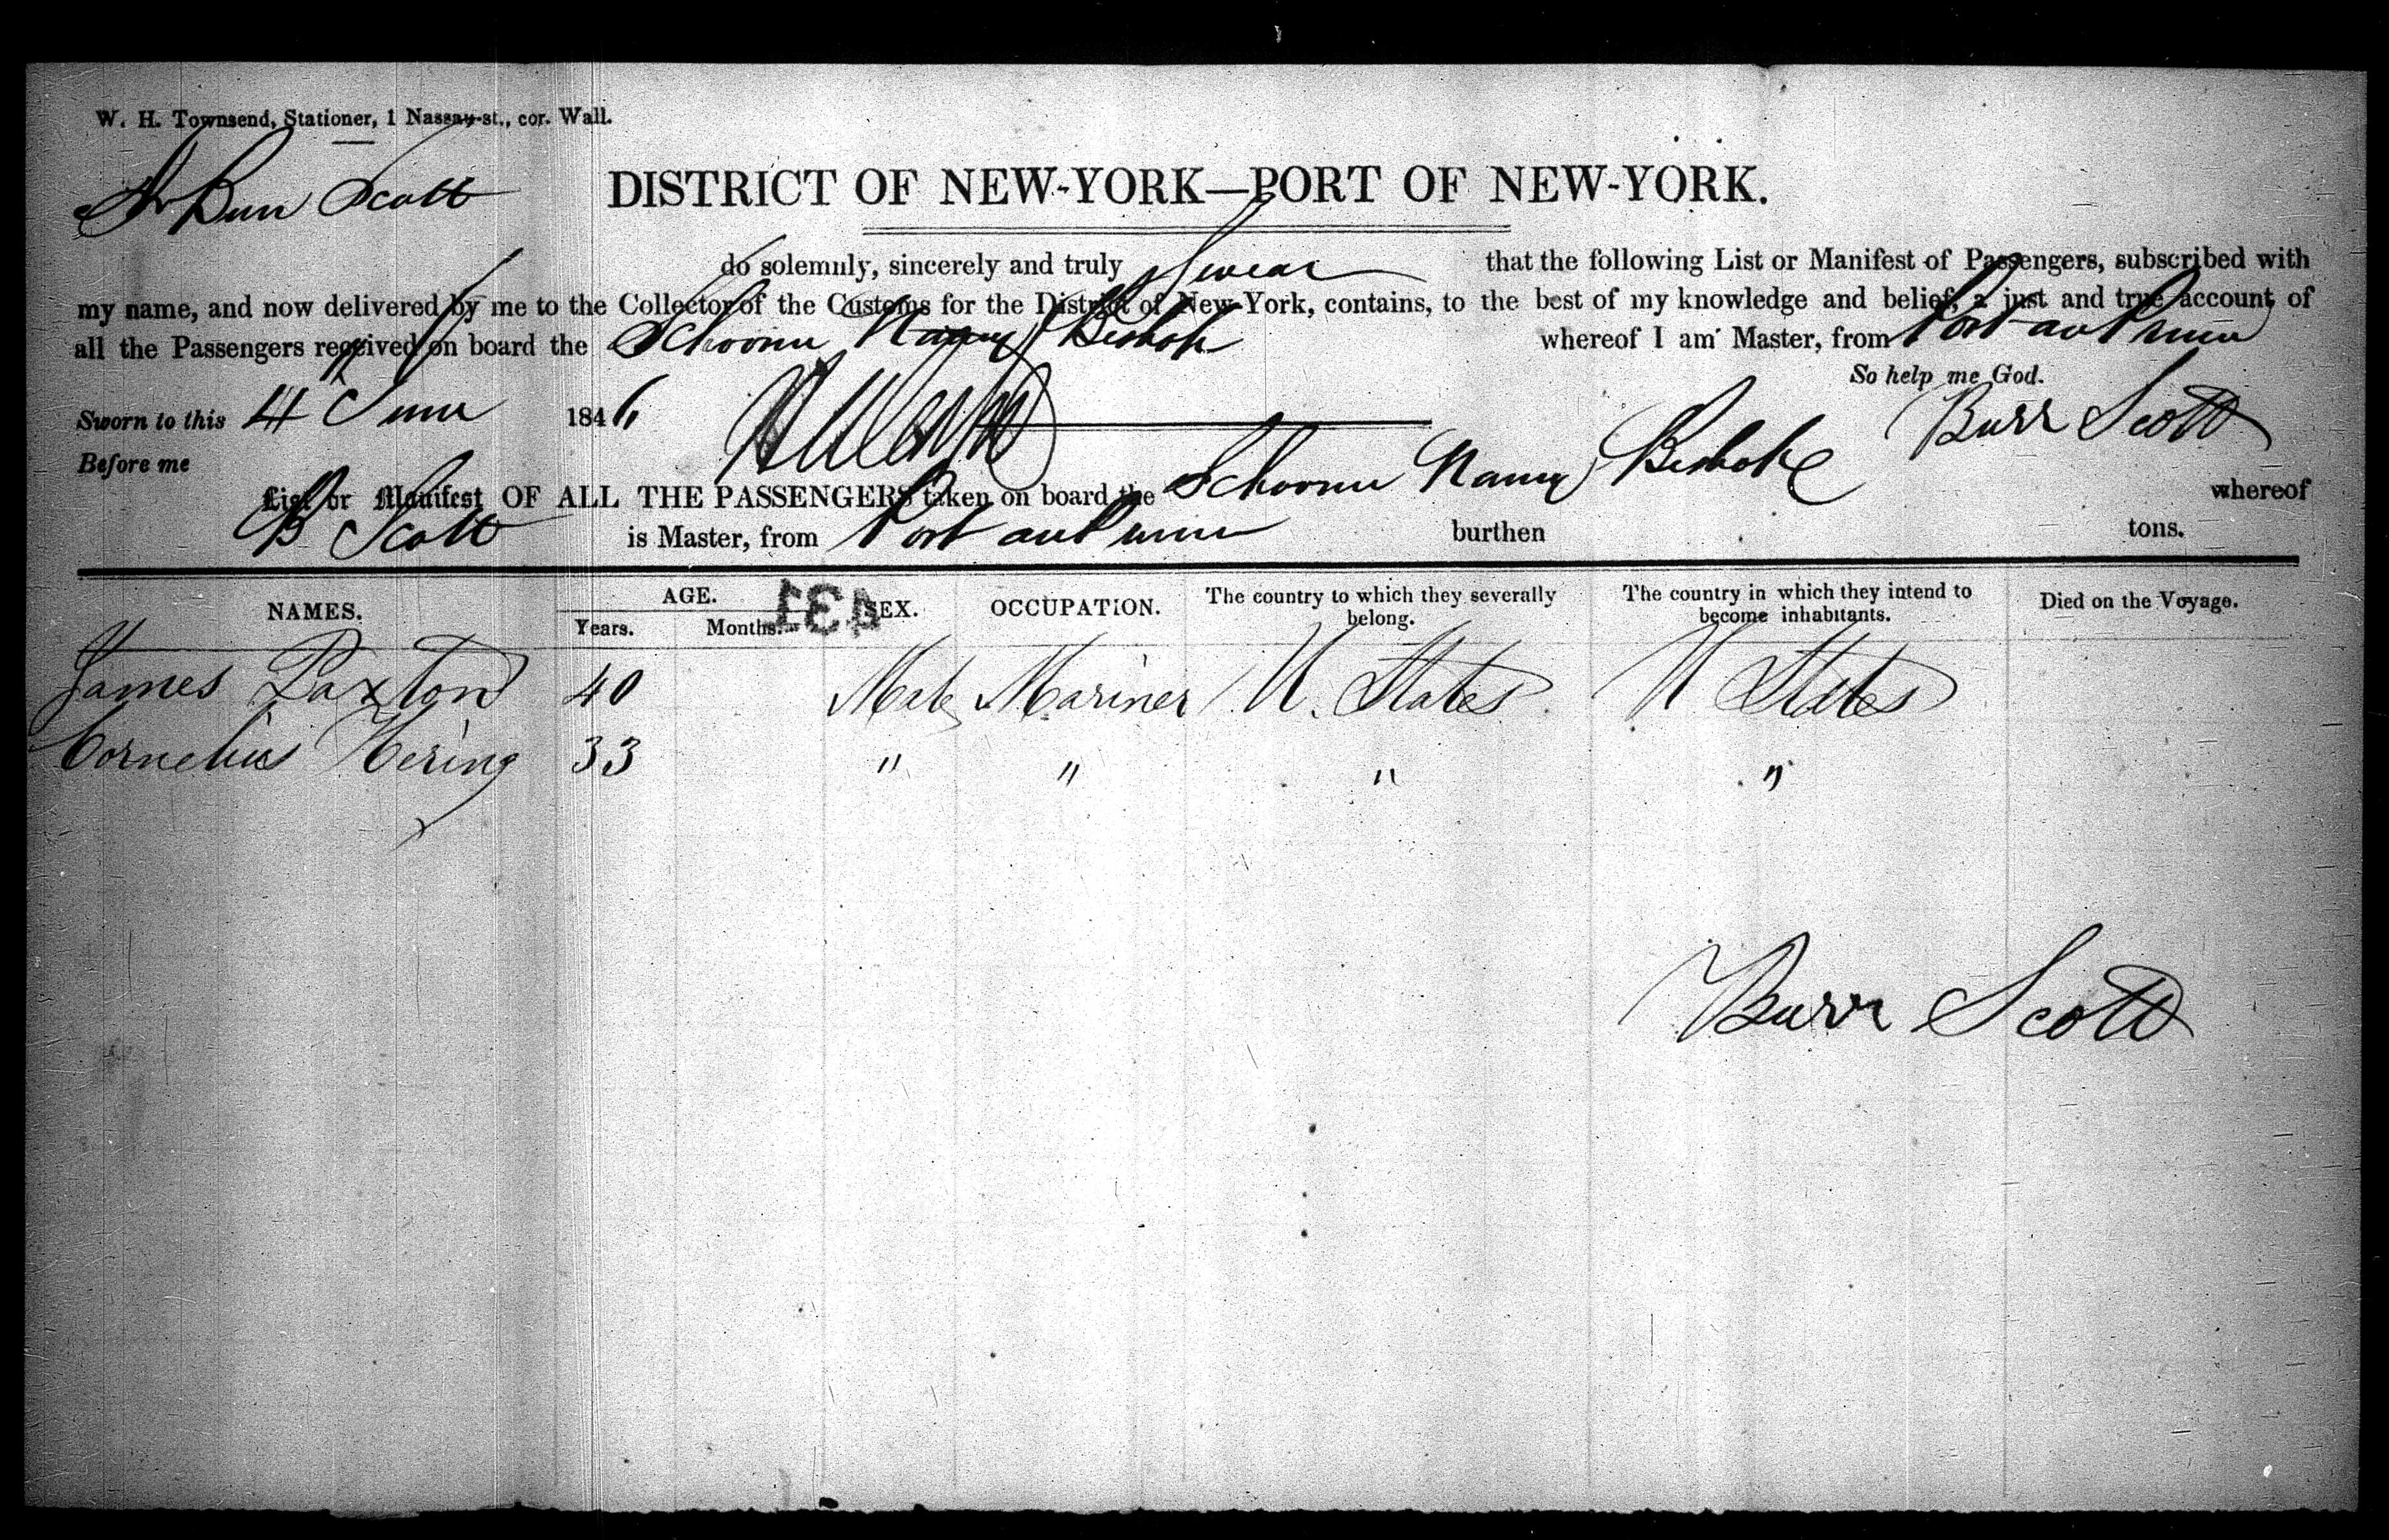 W. H. Townsend, Stationer, 1 Nassau-st., cor. Wall.
I Burr Scott
DISTRICT OF NEW-YORK—PORT OF NEW-YORK.
do solemnly, sincerely and truly Swear that the following List or Manifest of Passengers, subscribed with
my name, and now delivered by me to the Collector of the Customs for the District of New-York, contains, to the best of my knowledge and belief, a just and true account of
all the Passengers received on board the Schooner Nancy Bishop whereof I am Master, from Port au Prince
So help me God.
Sworn to this 4 June 1846 Burr Scott
Before me
List or Manifest OF ALL THE PASSENGERS taken on board the Schooner Nancy Bishop whereof
B Scott is Master, from Port au Prince burthen tons.
431
NAMES. AGE. SEX. OCCUPATION. The country to which they severally belong. The country in which they intend to become inhabitants. Died on the Voyage.
Years. Months.
James Paxton 40 Male Mariner U. States U States
Cornelius Hering 33 " " " "
Burr Scott